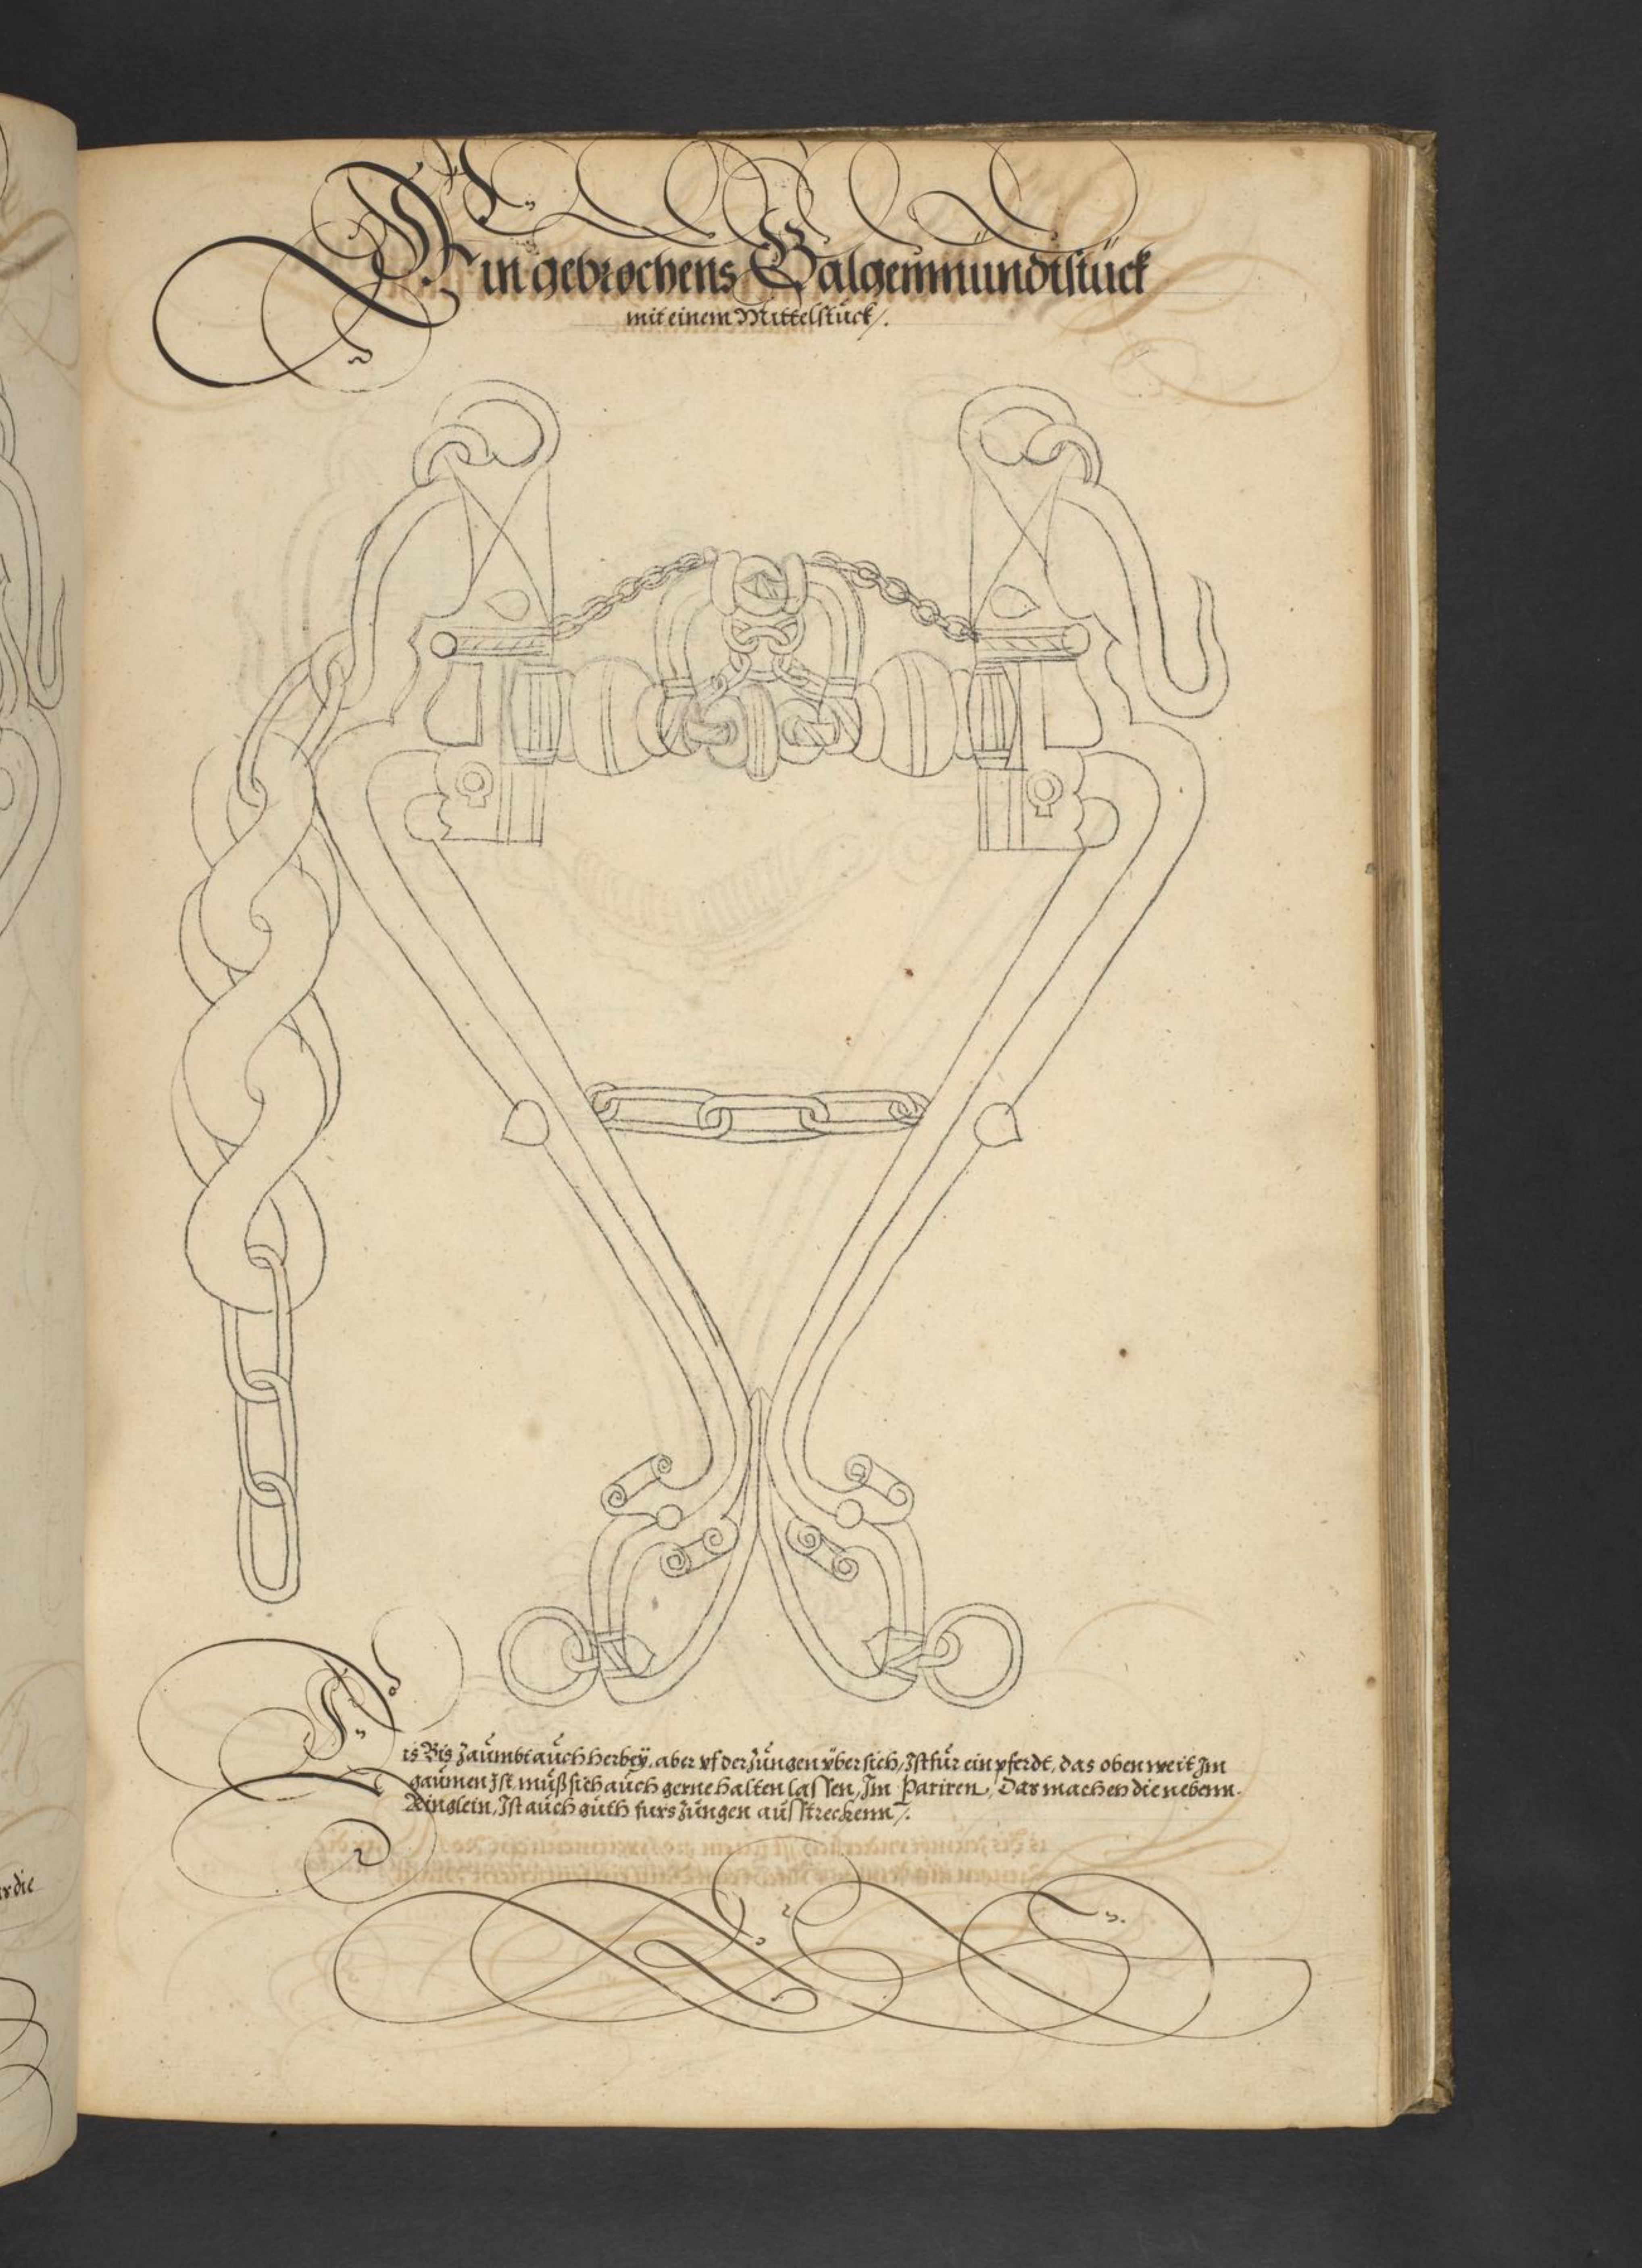 Ein gebrochens Galgenmündtstück
mit einem Mittelstück/.
Dis Bis Zäumbt auch herbeÿ, aber vf der Zungen vbersich, Ist für ein pferdt, das oben weit Im
gaumen Ist, muß sich auch gerne halten lassen, Im Pariren, Das machen die nebenn.
Ringlein, Ist auch guth furs Zungen ausstreckenn/.
rdie